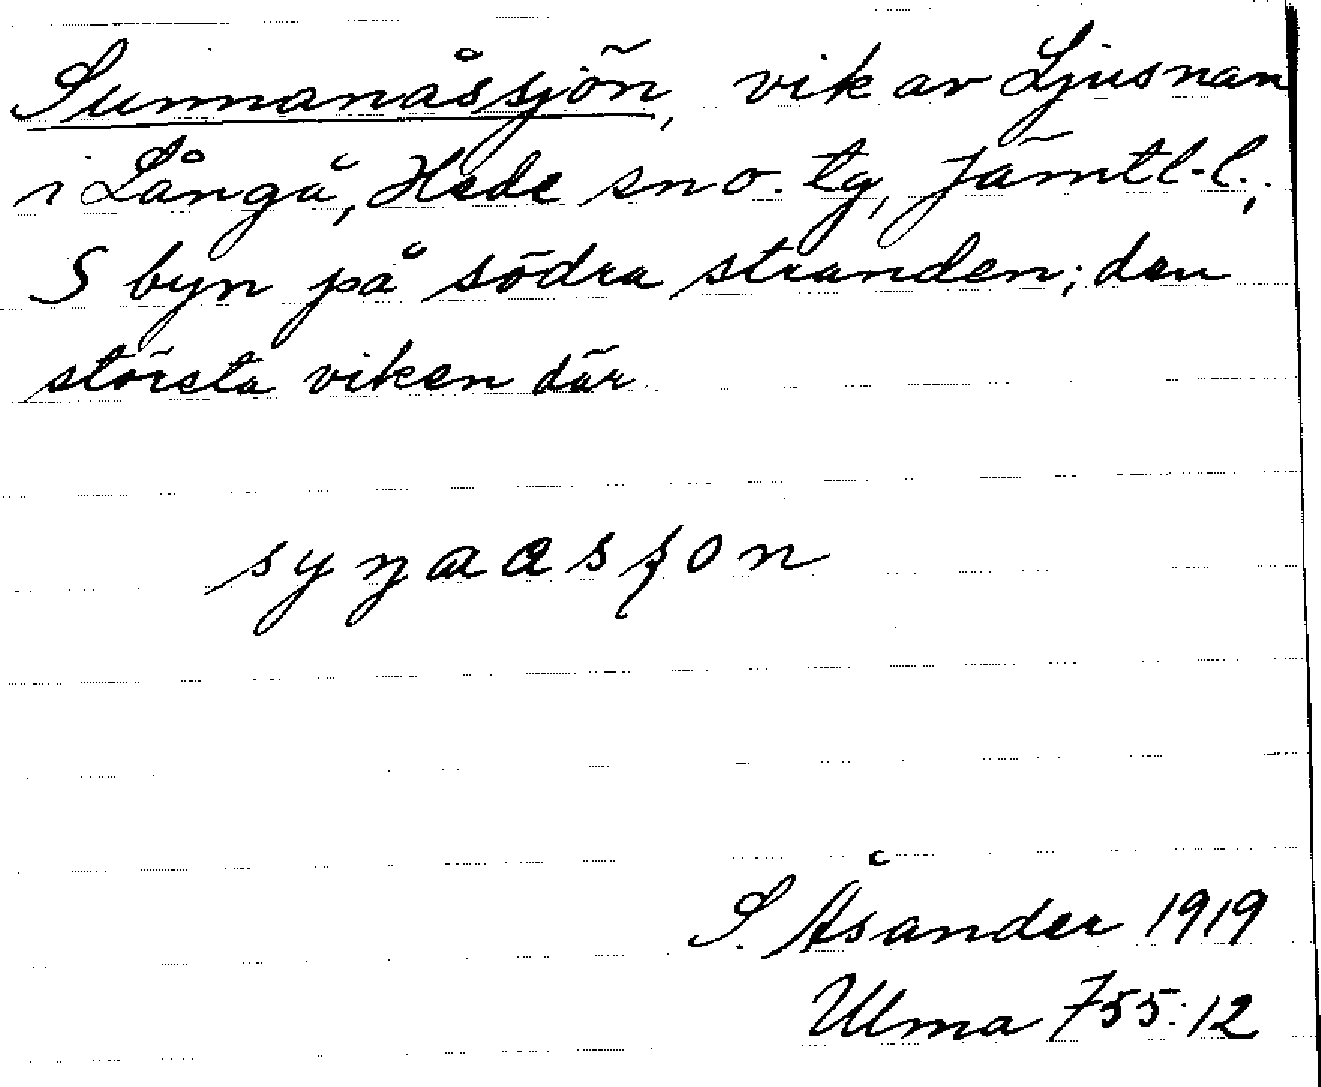 Sunnanåssjön, vik av Ljusnan
i Långå, Hede sn o. tg, Jämtl.l.,
S byn på södra stranden; den
största viken där
S. Åsander 1919
Ulma 755:12